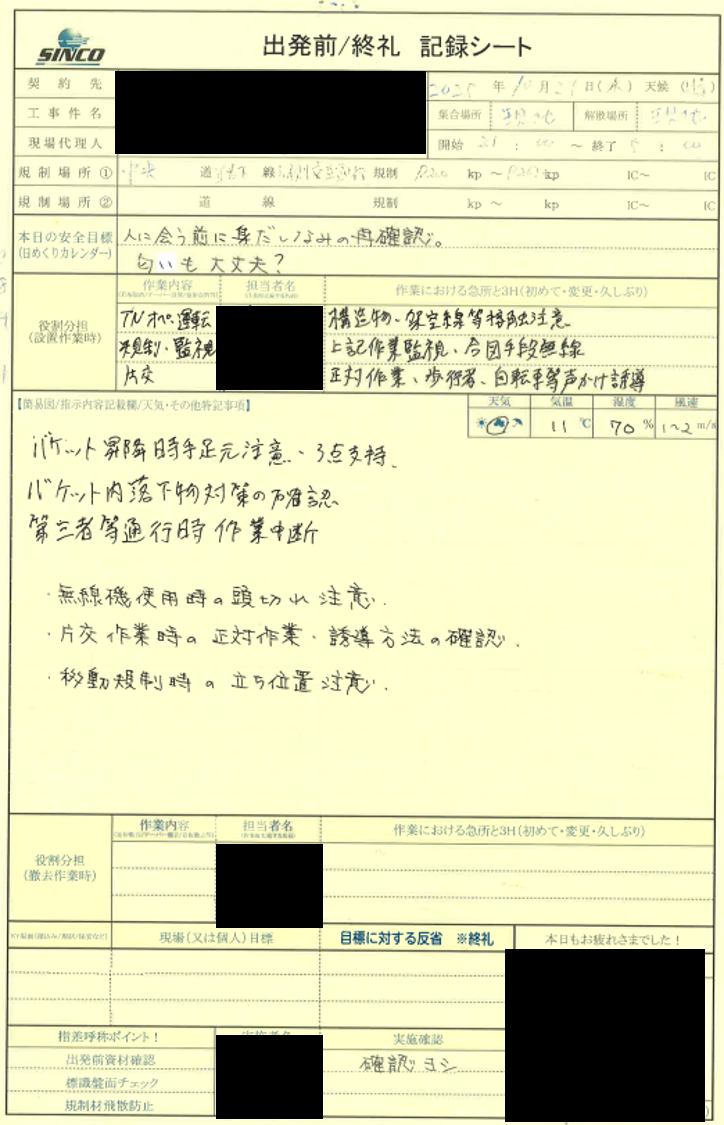 SINCO
出発前/終礼 記録シート
契約先
2025年10月29日(水) 天候()
工事件名
集合場所 現地 解散場所 現地
現場代理人
開始 21:00 ～ 終了 5:00
規制場所① 中央 道 線 規制 kp ～ kp IC～ IC
規制場所② 道 線 規制 kp ～ kp IC～ IC
本日の安全目標
(日めくりカレンダー)
人に会う前に身だしなみの再確認。
匂いも大丈夫?
役割分担
(設置作業時)
作業内容 担当者名 作業における急所と3H(初めて・変更・久しぶり)
TNオペ・運転 構造物、架空線等接触注意
規制・監視 上記作業監視、合図手段無線
片交 正対作業、歩行者、自転車等声かけ誘導
【簡易図/指示内容記載欄/天気・その他特記事項】
天気 気温 湿度 風速
11℃ 70% 1~2m/s
バケット昇降時手足元注意、3点支持.
バケット内落下物対策の確認
第三者等通行時作業中断
・無線機使用時の頭切れ注意.
・片交作業時の正対作業・誘導方法の確認.
・移動規制時の立ち位置注意.
役割分担
(撤去作業時)
作業内容 担当者名 作業における急所と3H(初めて・変更・久しぶり)
現場(又は個人)目標 目標に対する反省 ※終礼 本日もお疲れさまでした!
指差呼称ポイント! 実施者名 実施確認
出発前資材確認 確認ヨシ
標識盤面チェック
規制材飛散防止